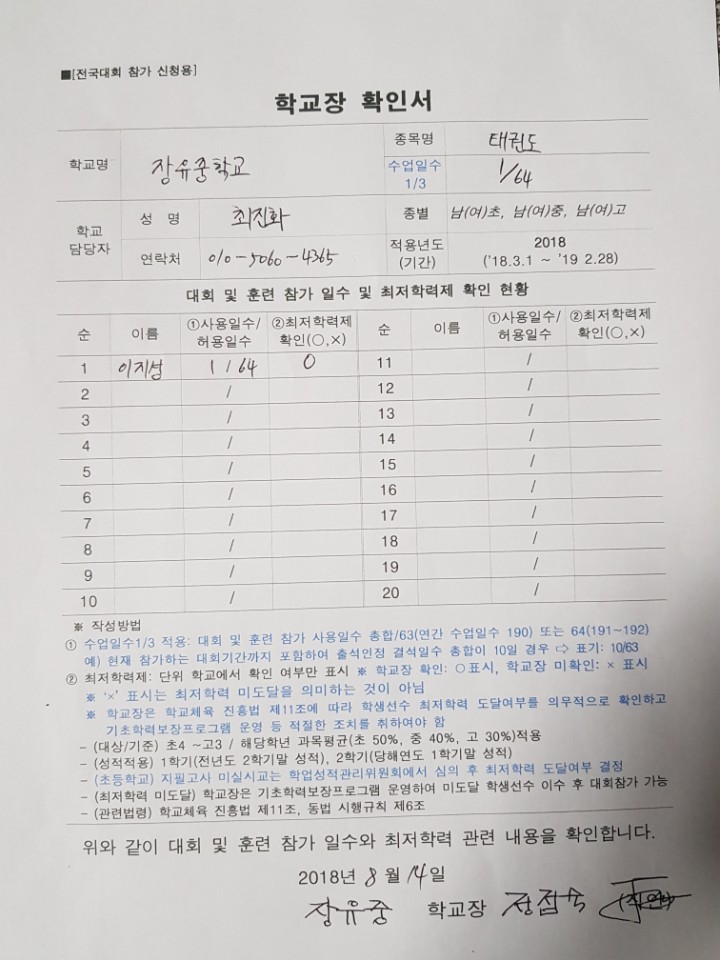 ■[전국대회 참가 신청용]
학교장 확인서
학교명 장유중학교 종목명 태권도
수업일수 1/3 1/64
학교 담당자 성 명 최진화 종별 남(여)초, 남(여)중, 남(여)고
연락처 010-5060-4365 적용년도 (기간) 2018 ('18.3.1 ~ '19 2.28)
대회 및 훈련 참가 일수 및 최저학력제 확인 현황
순 이름 ①사용일수/허용일수 ②최저학력제 확인(○,×) 순 이름 ①사용일수/허용일수 ②최저학력제 확인(○,×)
1 이지섭 1 / 64 O 11 /
2 / 12 /
3 / 13 /
4 / 14 /
5 / 15 /
6 / 16 /
7 / 17 /
8 / 18 /
9 / 19 /
10 / 20 /
※ 작성방법
① 수업일수1/3 적용: 대회 및 훈련 참가 사용일수 총합/63(연간 수업일수 190) 또는 64(191~192)
예) 현재 참가하는 대회기간까지 포함하여 출석인정 결석일수 총합이 10일 경우 ⇨ 표기: 10/63
② 최저학력제: 단위 학교에서 확인 여부만 표시 ※ 학교장 확인: ○표시, 학교장 미확인: × 표시
※ '×' 표시는 최저학력 미도달을 의미하는 것이 아님
※ 학교장은 학교체육 진흥법 제11조에 따라 학생선수 최저학력 도달여부를 의무적으로 확인하고
기초학력보장프로그램 운영 등 적절한 조치를 취하여야 함
- (대상/기준) 초4 ~고3 / 해당학년 과목평균(초 50%, 중 40%, 고 30%)적용
- (성적적용) 1학기(전년도 2학기말 성적), 2학기(당해연도 1학기말 성적)
- (초등학교) 지필고사 미실시교는 학업성적관리위원회에서 심의 후 최저학력 도달여부 결정
- (최저학력 미도달) 학교장은 기초학력보장프로그램 운영하여 미도달 학생선수 이수 후 대회참가 가능
- (관련법령) 학교체육 진흥법 제11조, 동법 시행규칙 제6조
위와 같이 대회 및 훈련 참가 일수와 최저학력 관련 내용을 확인합니다.
2018년 8 월 14일
장유중 학교장 정접숙